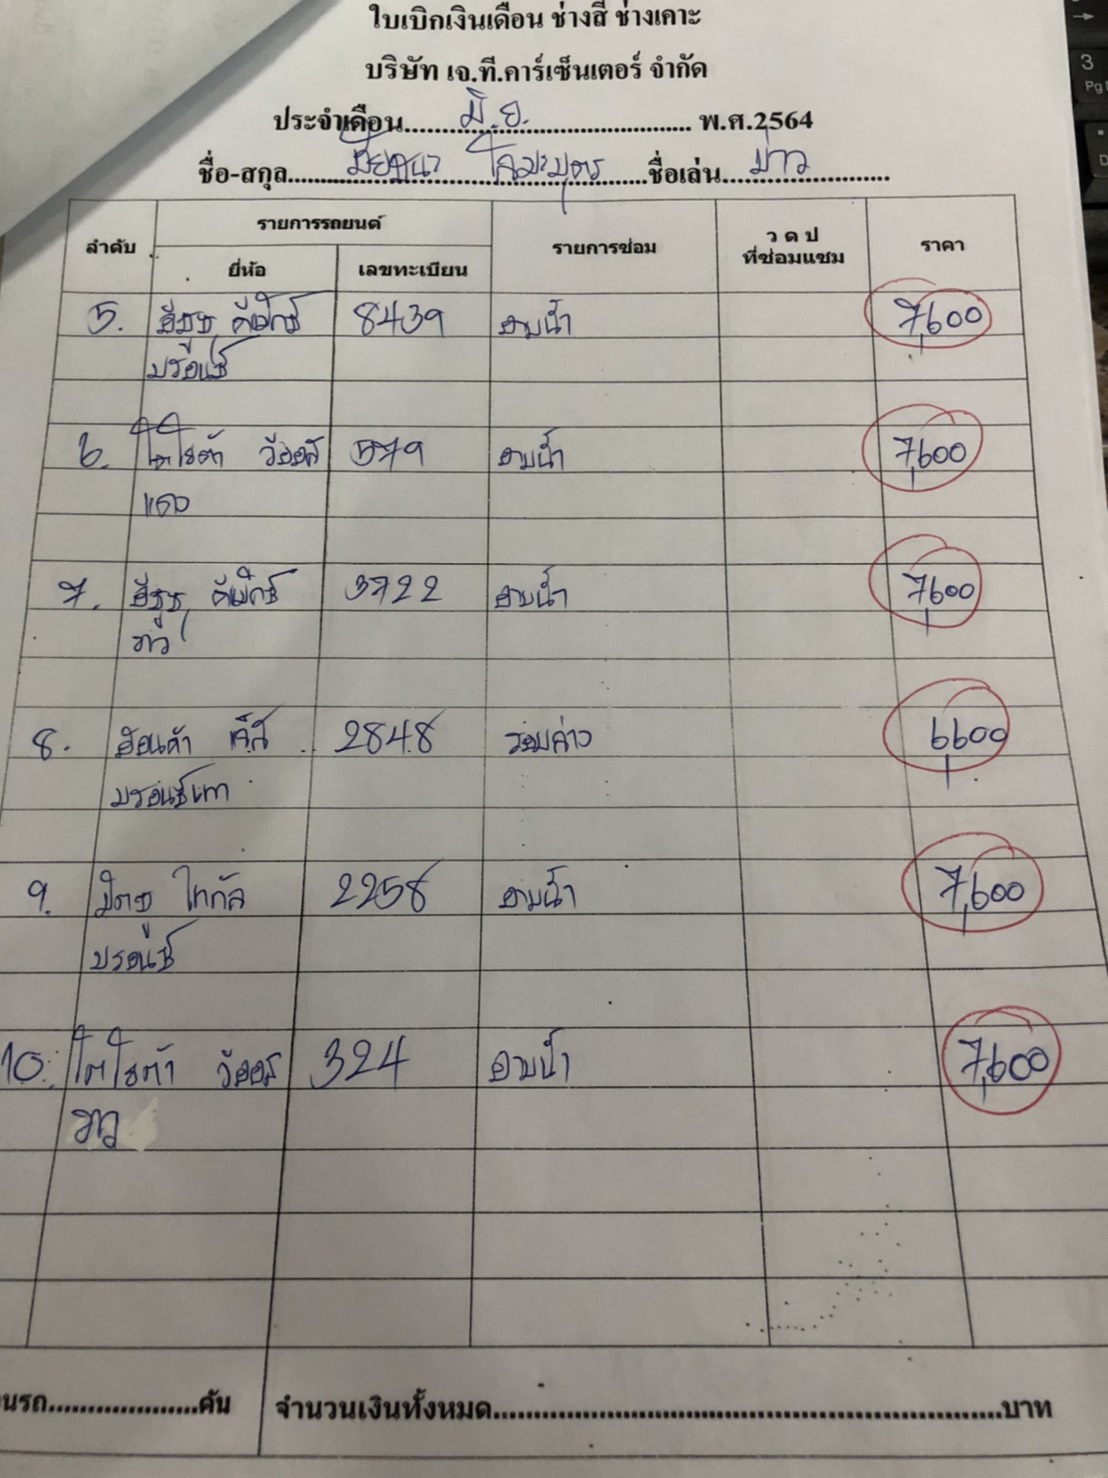 ใบเบิกเงินเดือน ช่างสี ช่างเคาะ
บริษัท เจ.ที.คาร์เซ็นเตอร์ จำกัด
ประจำเดือน....มิ.ย.....พ.ศ.2564
ชื่อ-สกุล.....ชื่อเล่น....บ่าว....
ลำดับ รายการรถยนต์ รายการซ่อม ว ด ป ที่ซ่อมแซม ราคา
ยี่ห้อ เลขทะเบียน
5. อีซูซุ ดีแม็กซ์ 8439 อาบน้ำ 7,600
บรอนซ์
6. โตโยต้า วีออส 579 อาบน้ำ 7,600
แดง
7. อีซูซุ ดีแม็กซ์ 3722 อาบน้ำ 7,600
ขาว
8. ฮอนด้า 2848 รอบล่าง 6,600
บรอนซ์เทา
9. มิตซู ไททัล 2258 อาบน้ำ 7,600
บรอนซ์
10. โตโยต้า วีออส 324 อาบน้ำ 7,600
ขาว
นรถ....................คัน จำนวนเงินทั้งหมด....................บาท
3
Pg